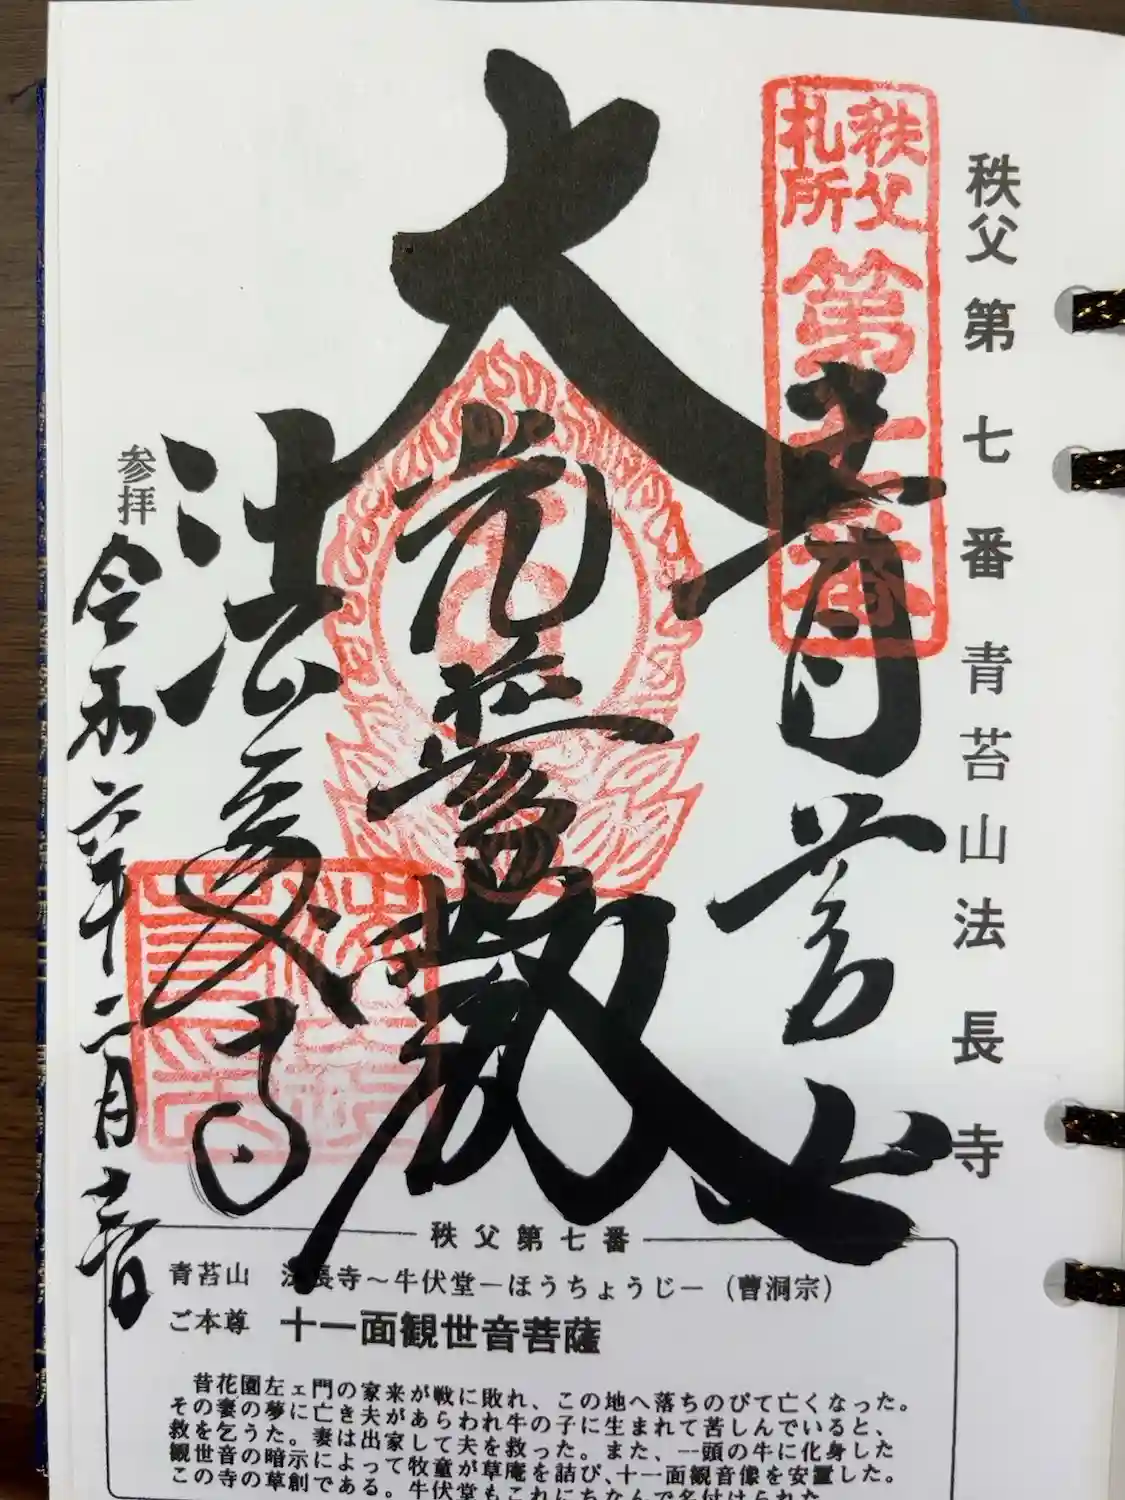 秩父第七番青苔山法長寺
秩父
札所
第七番
青苔山
大光普照殿
法長寺
参拝
令和六年十二月
秩父第七番
青苔山 法長寺～牛伏堂－ほうちょうじ－（曹洞宗）
ご本尊 十一面観世音菩薩
昔花園左ェ門の家来が戦に敗れ、この地へ落ちのびて亡くなった。
その妻の夢に亡き夫があらわれ牛の子に生まれて苦しんでいると、
救を乞うた。妻は出家して夫を救った。また、一頭の牛に化身した
観世音の暗示によって牧童が草庵を詰び、十一面観音像を安置した。
この寺の草創である。牛伏堂もこれにちなんで名付けられた